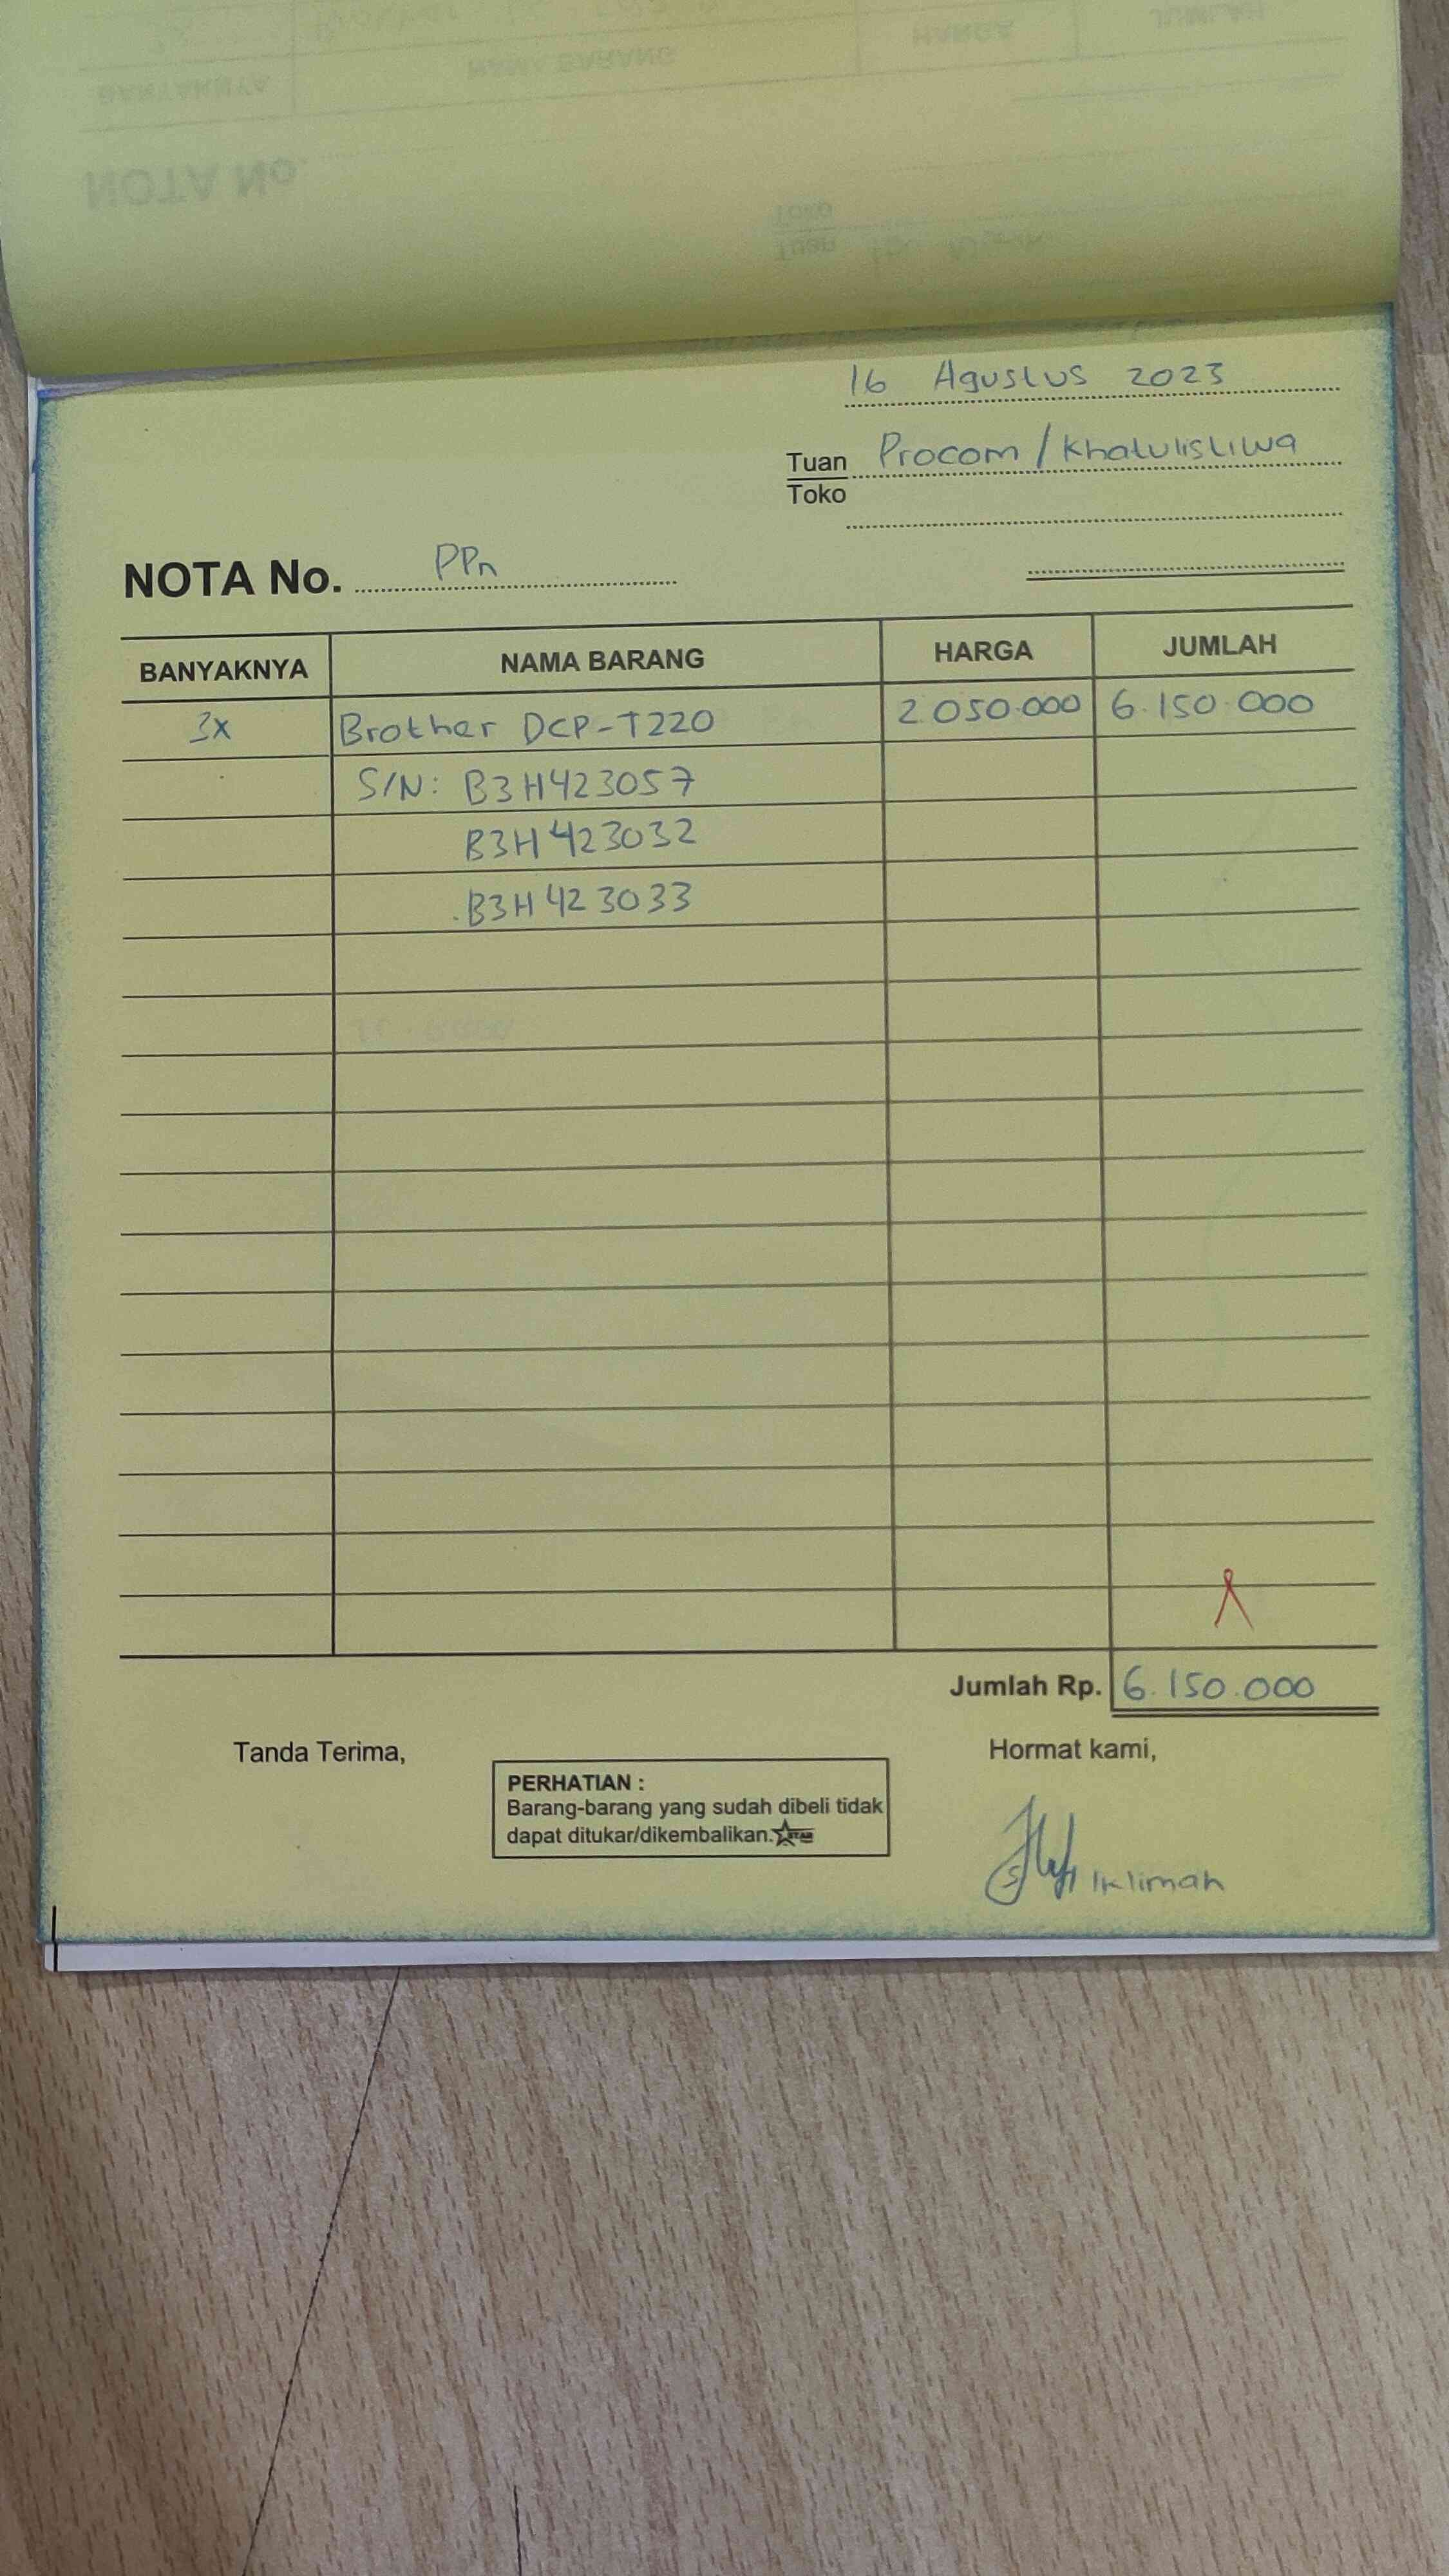 BANYAKNYA NAMA BARANG HARGA JUMLAH
NOTA No.
Tuan
Toko
16 Agustus 2023
Tuan Procom / Khatulistiwa
Toko
NOTA No. PPn
BANYAKNYA NAMA BARANG HARGA JUMLAH
3x Brother DCP-T220 2.050.000 6.150.000
S/N: B3H423057
B3H423032
B3H423033
Jumlah Rp. 6.150.000
Tanda Terima, Hormat kami,
PERHATIAN :
Barang-barang yang sudah dibeli tidak
dapat ditukar/dikembalikan.
Iklimah